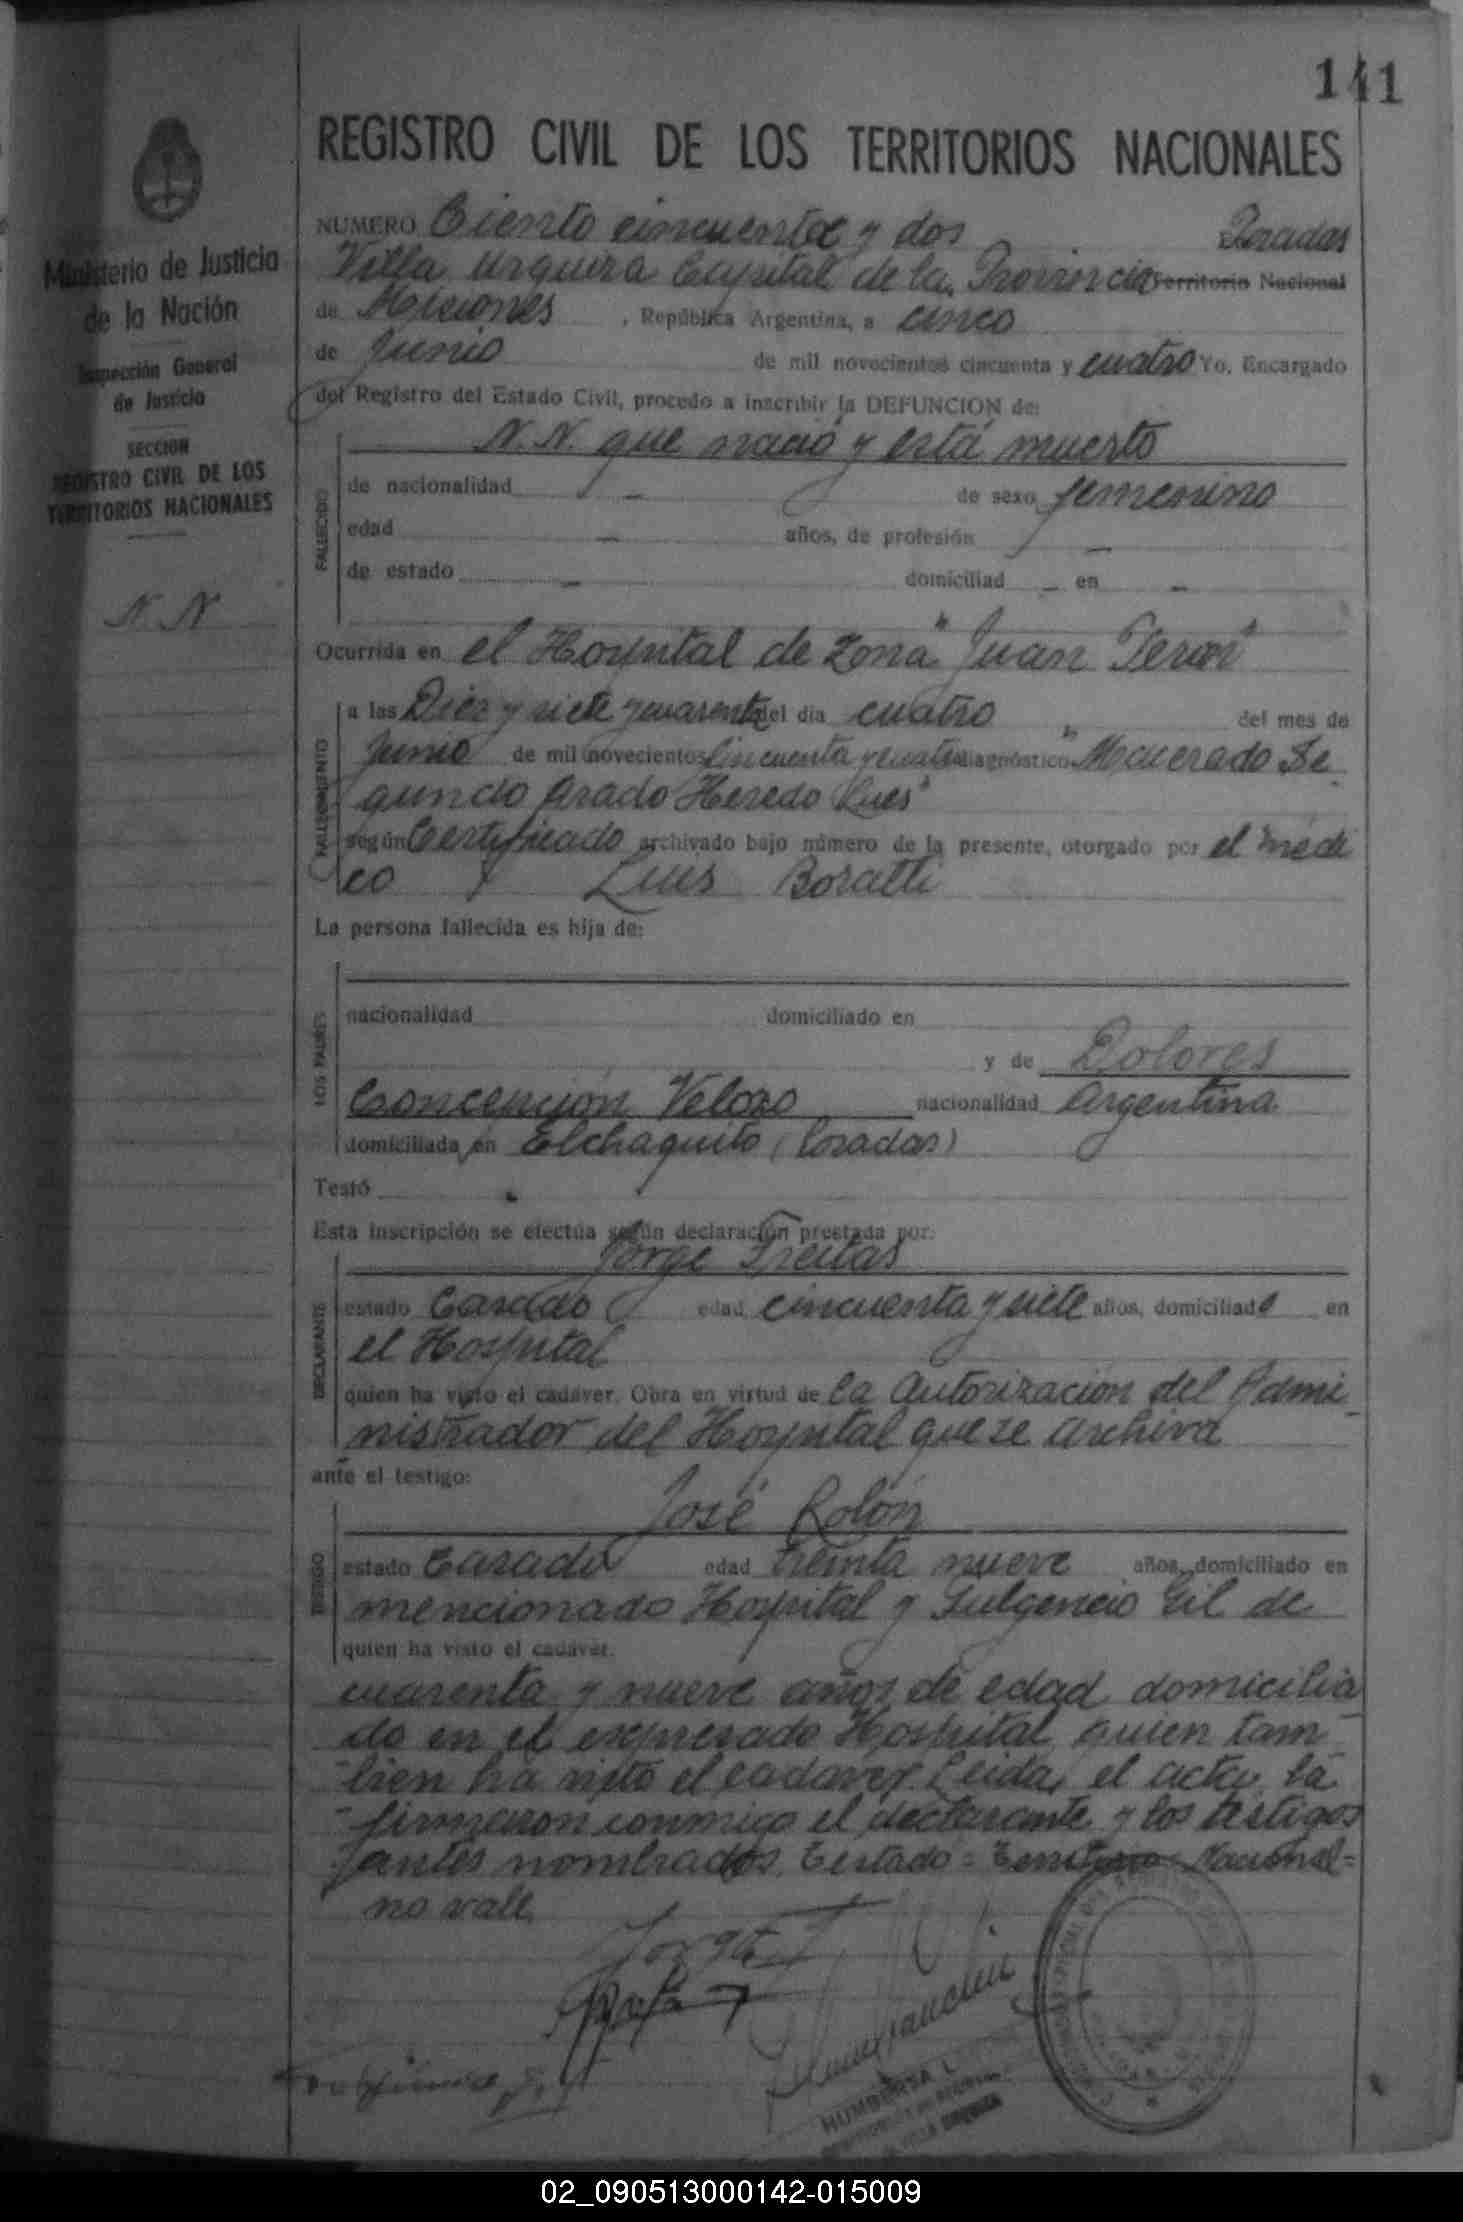 141
REGISTRO CIVIL DE LOS TERRITORIOS NACIONALES
Ministerio de Justicia
de la Nación
Inspección General
de Justicia
SECCION
REGISTRO CIVIL DE LOS
TERRITORIOS NACIONALES
N. N
NUMERO Ciento cincuenta y dos Posadas
Villa Urquiza Capital de la Provincia Territorio Nacional
de Misiones , República Argentina, a cinco
de Junio de mil novecientos cincuenta y cuatro Yo, Encargado
del Registro del Estado Civil, procedo a inscribir la DEFUNCION de:
N. N. que nació y está muerto
FALLECIDO
de nacionalidad - de sexo femenino
edad - años, de profesión -
de estado - domiciliad - en -
Ocurrida en el Hospital de Zona "Juan Perón"
FALLECIMIENTO
a las Diez y siete y cuarenta del día cuatro del mes de
Junio de mil novecientos cincuenta y cuatro diagnóstico "Macerado Se
gundo Grado Heredo Lues"
según Certificado archivado bajo número de la presente, otorgado por el médi
co Luis Boratti
La persona fallecida es hija de:
LOS PADRES
nacionalidad domiciliado en
y de Dolores
Concepción Velozo nacionalidad Argentina
domiciliada en El chaquito (Posadas)
Testó
Esta inscripción se efectúa según declaración prestada por:
Jorge Freitas
DECLARANTE
estado Casado edad cincuenta y siete años, domiciliado en
el Hospital
quien ha visto el cadáver. Obra en virtud de la Autorización del Admi
nistrador del Hospital que se archiva
ante el testigo:
José Rolón
TESTIGO
estado Casado edad treinta nueve años, domiciliado en
mencionado Hospital y Fulgencio Gil de
quien ha visto el cadáver.
cuarenta y nueve años de edad domicilia
do en el expresado Hospital quien tam
bien ha visto el cadaver. Leida el acta la
firmaron conmigo el declarante y los testigos
antes nombrados. Testado = Territorio Nacional =
no vale.
Jorge F
HUMBERSA L
VILLA URQUIZA
02_090513000142-015009